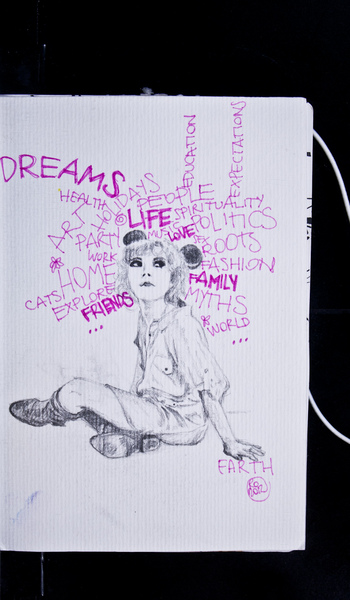 DREAMS
EDUCATION
EXPECTATIONS
HEALTH
HOLIDAYS
PEOPLE
ART
LIFE
SPIRITUALITY
POLITICS
PARTY
LOVE
ROOTS
WORK
HOME
FASHION
CATS
EXPLORE
FAMILY
FRIENDS
MYTHS
...
WORLD
...
EARTH